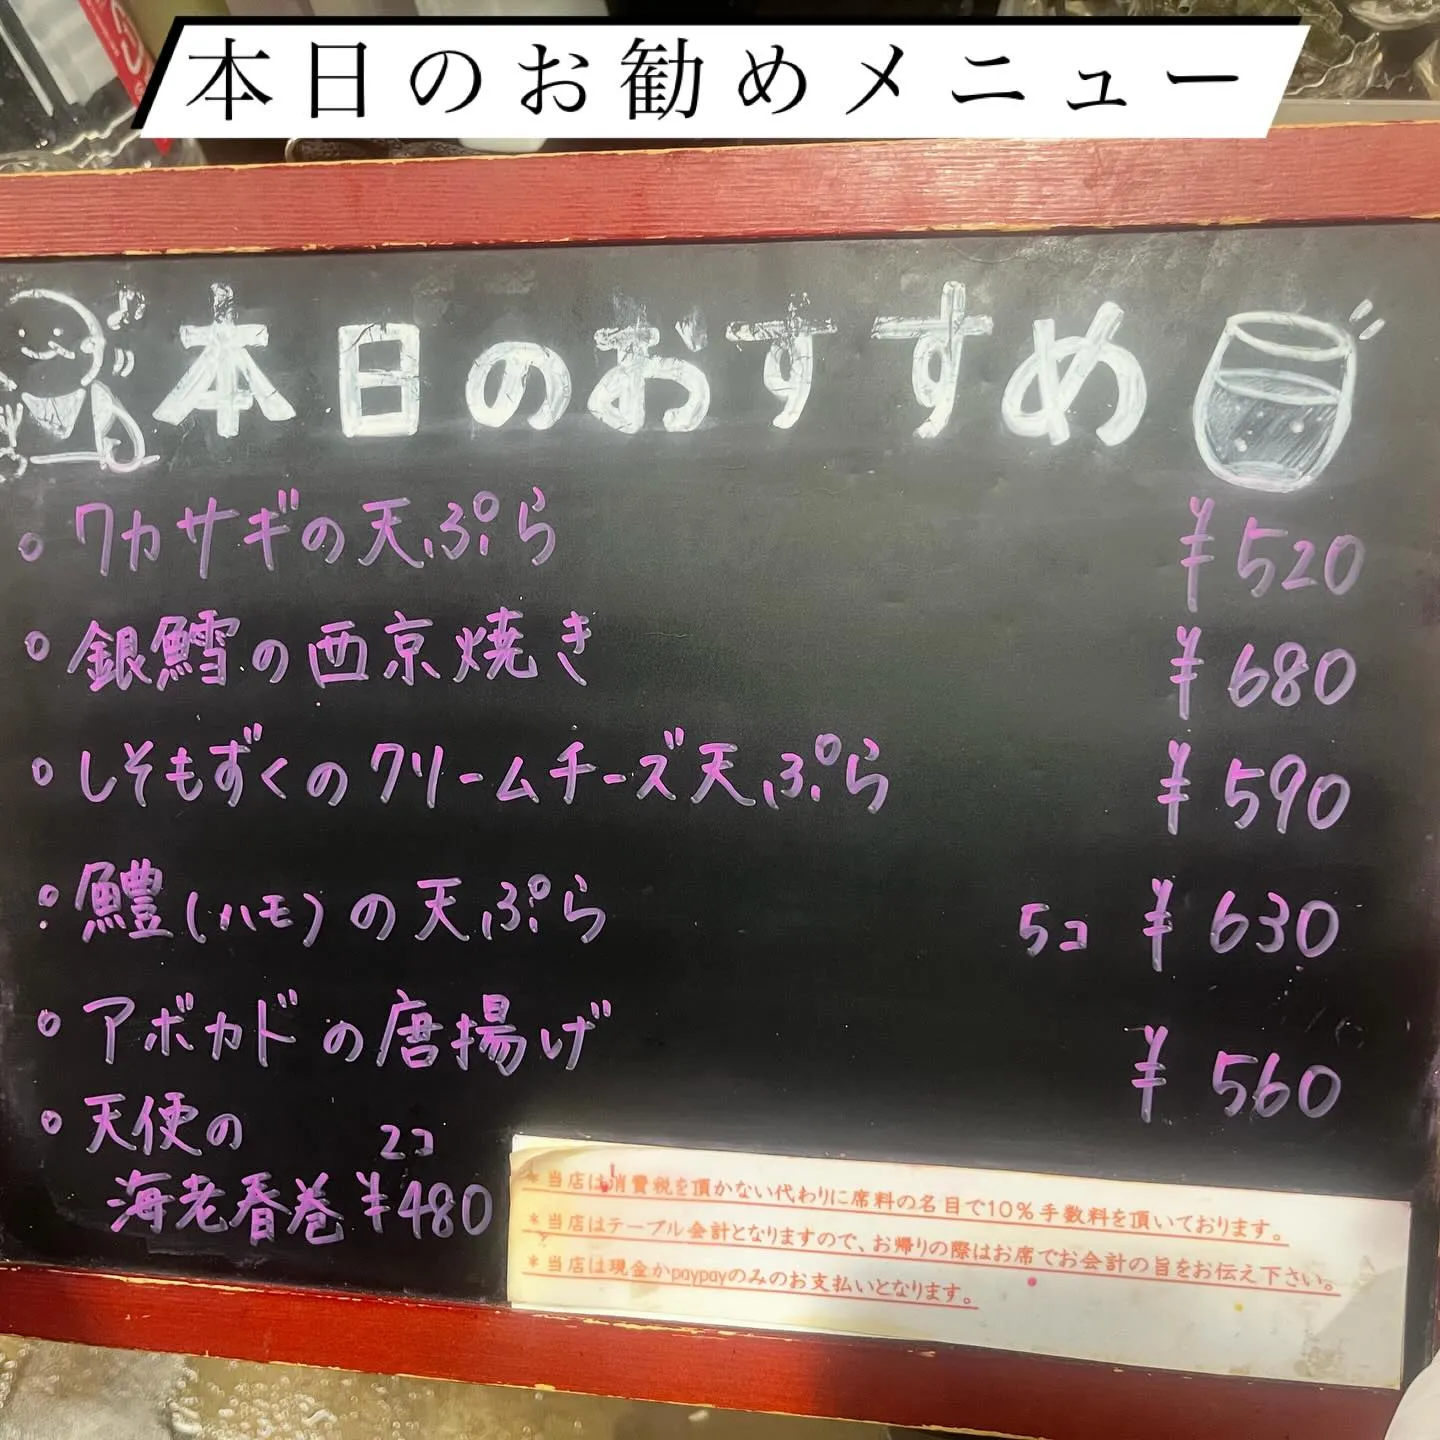 本日のお勧めメニュー
本日のおすすめ
ワカサギの天ぷら ¥520
銀鱈の西京焼き ¥680
しそもずくのクリームチーズ天ぷら ¥590
鱧(ハモ)の天ぷら 5コ ¥630
アボカドの唐揚げ ¥560
天使の
海老春巻 2コ ¥480
*当店は消費税を頂かない代わりに席料の名目で10%手数料を頂いております。
*当店はテーブル会計となりますので、お帰りの際はお席でお会計の旨をお伝え下さい。
*当店は現金かpaypayのみのお支払いとなります。